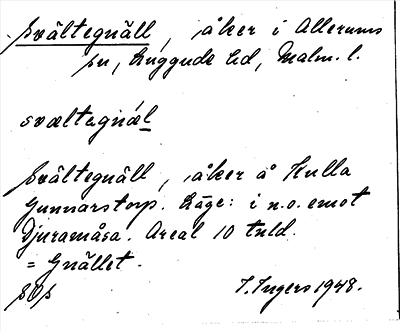 Svältegnäll, åker i Allerums
sn, Luggude hd, Malm. l.
svæltagnǽl
Svältegnäll, åker å Kulla
Gunnarstorp. Läge: i n.o. emot
Djuramåsa. Areal 10 tnld.
= Gnället.
SOs
I. Ingers 1948.